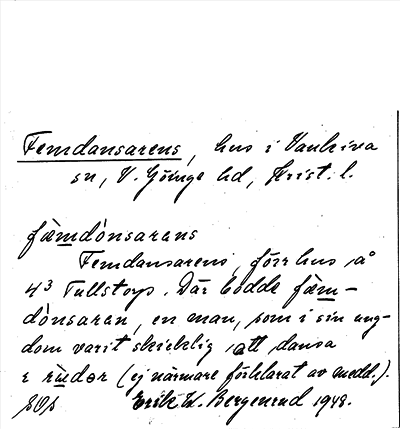 Femdansarens, hus i Vankiva
sn, V. Göinge hd, Krist. l.
fæmdònsarans
Femdansarens, förr hus å
4³ Tullstorp. Där bodde fæm-
dònsaran, en man, som i sin ung-
dom varit skicklig att dansa
(ej närmare förklarat av medd.).
Erik K. Bergenrud 1948.